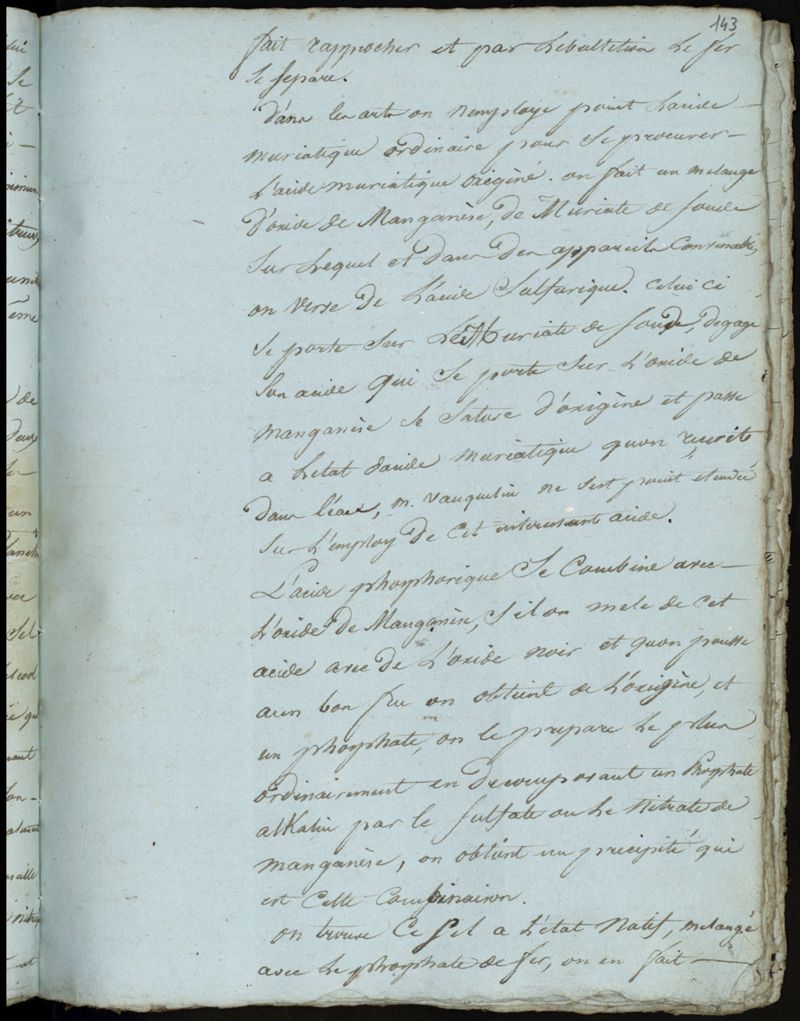 143
fait rapprocher et par Lebullition Le fer
se separe.
Dans les arts on n'employe point Lacide
muriatique ordinaire pour se procurer
L'acide muriatique oxigéné. on fait un melange
D'oxide de Manganèse, de Muriate de soude
sur Lequel et dans Des appareils Convenables,
on verse De L'acide Sulfurique. Celui ci
se porte sur Le Muriate de soude, degage
son acide qui se porte sur L'oxide de
manganèse se sature d'oxigène et passe
a Letat dacide muriatique quon
Dans L'eau, m. vauquelin ne s'est point etendu
sur L'employ De Cet interessant acide.
L'acide phosphorique se Combine avec
L'oxide De Manganèse, s'il on mele de cet
acide avec De L'oxide noir et quon pousse
a un bon feu on obtient de L'oxigène, et
un phosphate, on le prepare Le plus
ordinairement en Decomposant un Phosphate
alkalin par le sulfate ou Le Nitrate de
manganèse, on obtient un precipité qui
est Cette Combinaison.
on trouve Ce sel a L'état Natif, melangé
avec Le phosphate de fer, on en fait